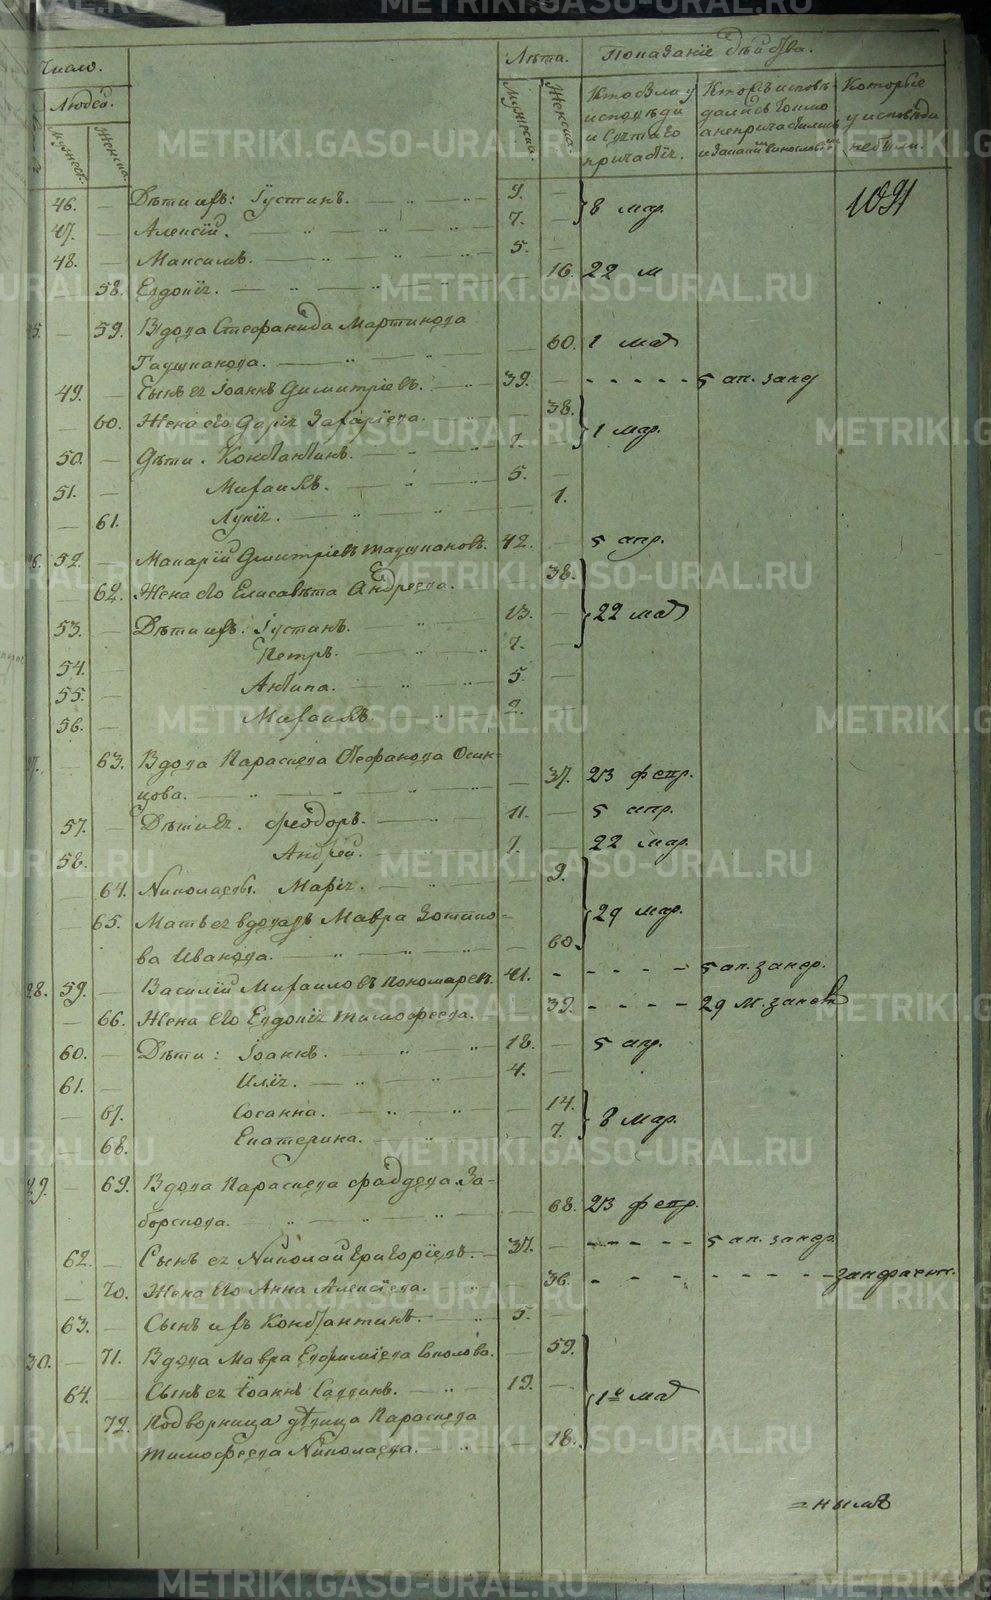 Число.
Людей.
Мужеск.
Женска.
Лѣта.
Мужеска.
Женска.
Показанїе дѣйства.
Кто были у
исповѣди
и Святаго
причастія.
Кто исповѣ-
дались токмо
а непричастились
и за какимъ виносл
Которые
у исповѣди
не были.
1091
46. Дѣти ихъ: Іустинъ. 9.
47. Алексій. 7. 8 мар.
48. Максимъ. 5.
58. Евдокія. 16. 22 м
25. 59. Вдова Стефанида Мартинова
Таушканова. 60. 1 мар
49. Сынъ ея Іоаннъ Димитріевъ. 39. 5 ап. занеф
60. Жена его Дарія Захаріева. 38.
50. Дѣти. Константинъ. 7. 1 мар.
51. Михаилъ. 5.
61. Лукія. 1.
26. 52. Макарій Дмитріевъ Таушкановъ. 42. 5 апр.
62. Жена его Елисавѣта Андреева. 38.
53. Дѣти ихъ: Іустинъ. 13. 22 мар
54. Петръ. 7.
55. Антипа. 5.
56. Михаилъ. 2.
27. 63. Вдова Параскева Стефанова Осин-
цова. 37. 23 февр.
57. Дѣти ея. Феодоръ. 11. 5 апр.
58. Андрей. 7. 22 мар.
64. Николаевы. Марія. 9.
65. Мать ея вдова Мавра
ва Иванова. 60. 29 мар.
28. 59. Василій Михаиловъ Пономарев. 41. 5 ап. занеф.
66. Жена его Евдокія Тимофеева. 39. 29 м. занеф
60. Дѣти: Іоаннъ. 18. 5 апр.
61. Илія. 4.
67. Сосанна. 14.
68. Екатерина. 7. 8 мар.
29. 69. Вдова Параскева Фаддеева За-
борскова. 68. 23 февр.
62. Сынъ ея Николай Григоріевъ. 37. 5 ап. занеф
70. Жена его Анна Алексіева. 36.
63. Сынъ ихъ Константинъ. 5.
30. 71. Вдова Мавра Евфиміева Соколова. 59.
64. Сынъ ея Іоаннъ Саввинъ. 19. 1е мар
72. Подворница дѣвица Параскева
Тимофеева Николаева. 18.
METRIKI.GASO-URAL.RU